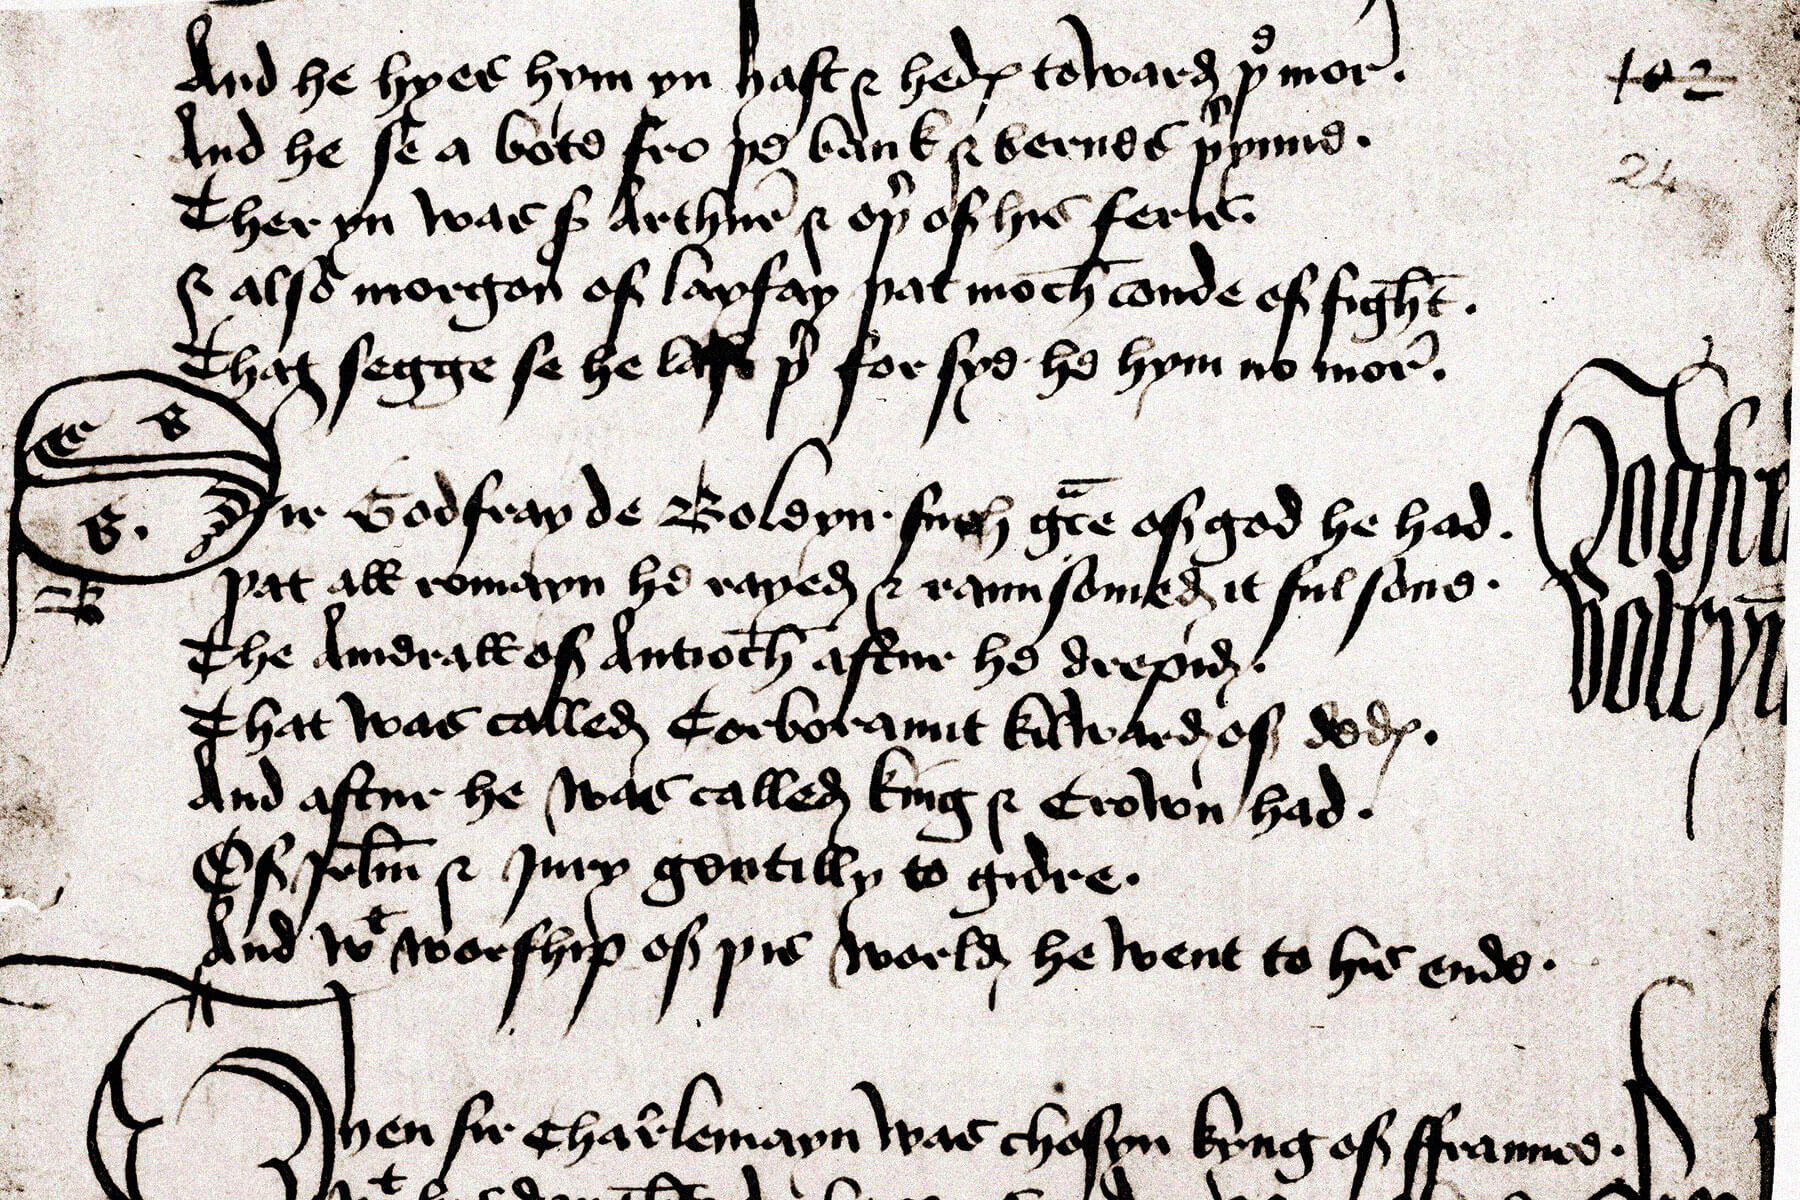 And he hyes hym yn hast & hedꝭ toward þe mor̉.
And he se a bote fro þe bank & bernes þ̉ynne.
Ther yn was sꝰ Arthur̉ & oþ̉ of his feris.
& also morgon of layfay þat moch̄ conde of fight̄.
That segge se he last þ̉ for syd he hym no mor̉.
Sir Godfray de Boleyn such gc̄e of god he had.
þat all romayn he rayed & raunsomed it ful sone.
The Amerall of Antioch̄ aftur he drepid.
That was called Corboraunt kuward of dedꝭ.
And aftur he was called king & Crown had.
Of Jrl̄m & Jury gentilly to gidre.
And wt worship of þis world he went to his ende.
Then sir Charlemayn was chosyn kyng of ffraunce.
102
24
Godfr
Boleyn